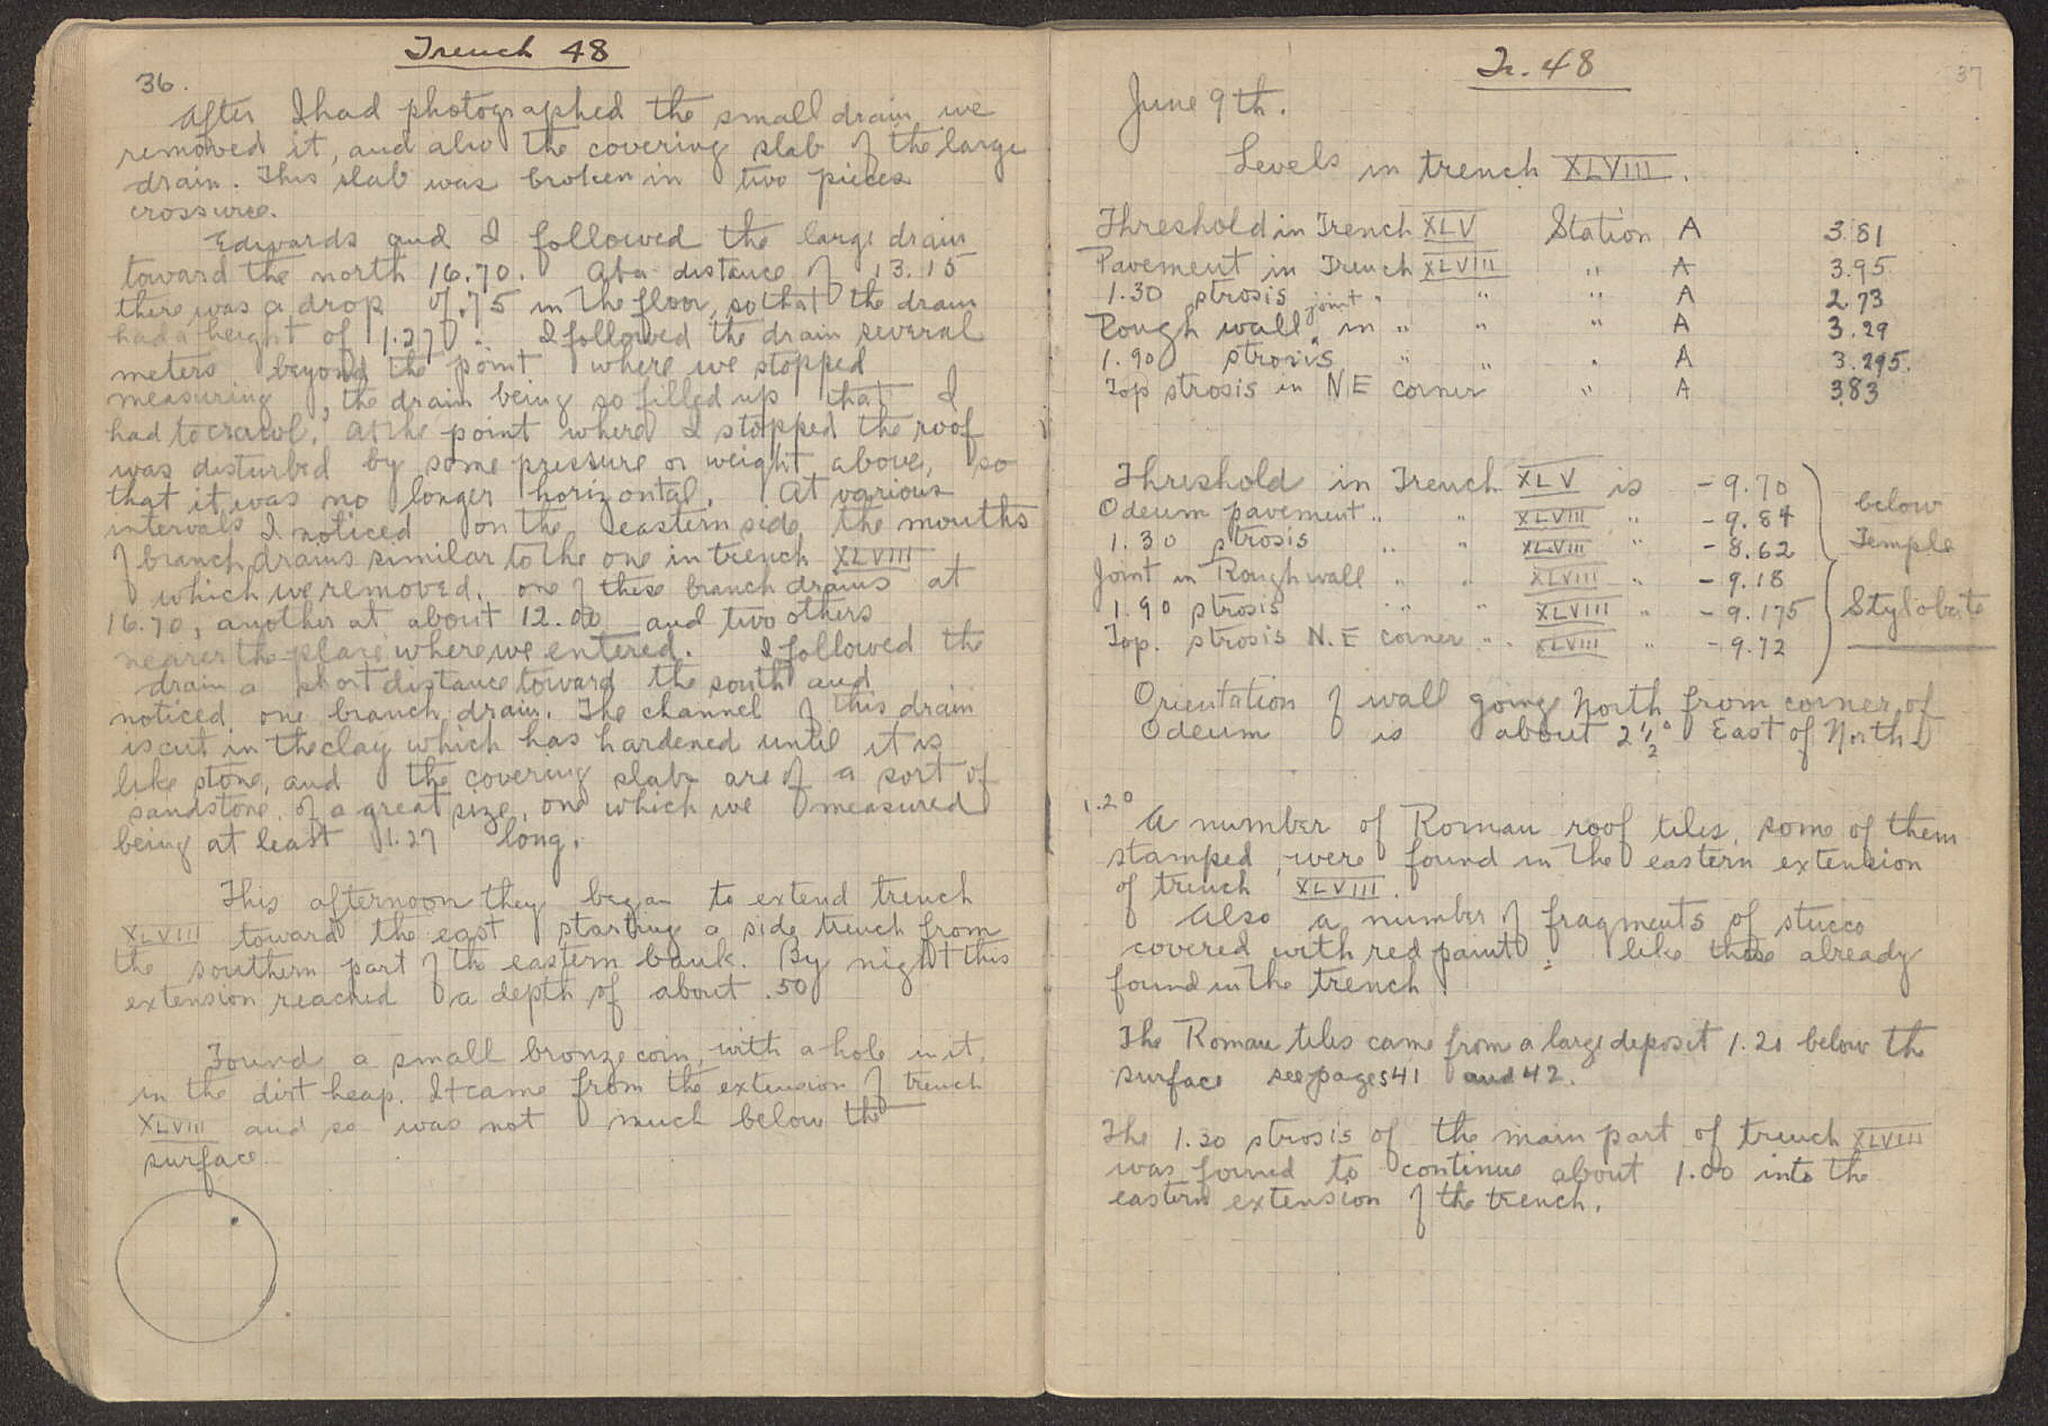 Trench 48
36.
After I had photographed the small drain, we
removed it, and also the covering slab of the large
drain. This slab was broken in two pieces
crosswise.
Edwards and I followed the large drain
toward the north 16.70. At a distance of 13.15
there was a drop of .75 in the floor, so that the drain
had a height of 1.27. I followed the drain several
meters beyond the point where we stopped
measuring, the drain being so filled up that I
had to crawl. At the point where I stopped the roof
was disturbed by some pressure or weight above, so
that it was no longer horizontal. At various
intervals I noticed on the eastern side the mouths
of branch drains similar to the one in trench XLVIII
which we removed. one of these branch drains at
16.70, another at about 12.00 and two others
nearer the place where we entered. I followed the
drain a short distance toward the south and
noticed one branch drain. The channel of this drain
is cut in the clay which has hardened until it is
like stone, and the covering slabs are of a sort of
sandstone, of a great size, one which we measured
being at least 1.27 long.
This afternoon they began to extend trench
XLVIII toward the east starting a side trench from
the southern part of the eastern bank. By night this
extension reached a depth of about .50
Found a small bronze coin, with a hole in it,
in the dirt heap. It came from the extension of trench
XLVIII and so was not much below the
surface.
Tr. 48
37
June 9th.
Levels in trench XLVIII.
Threshold in Trench XLV Station A 3.81
Pavement in Trench XLVIII " A 3.95
1.30 strosis " " " A 2.73
Rough wall joint in " " " A 3.29
1.90 strosis " " " A 3.295.
Top strosis in NE corner " A 3.83
Threshold in Trench XLV is - 9.70
Odeum pavement " " XLVIII " - 9.84 below
1.30 strosis " " XLVIII " - 8.62 Temple
Joint in Rough wall " " XLVIII " - 9.18
1.90 strosis " " XLVIII " - 9.175 Stylobate
Top. strosis N.E corner " " XLVIII " - 9.72
Orientation of wall going North from corner of
Odeum is about 2 1/2° East of North.
1.20
A number of Roman roof tiles, some of them
stamped, were found in the eastern extension
of trench XLVIII.
Also a number of fragments of stucco
covered with red paint. like those already
found in the trench.
The Roman tiles came from a large deposit 1.20 below the
surface see pages 41 and 42.
The 1.30 strosis of the main part of trench XLVIII
was found to continue about 1.00 into the
eastern extension of the trench.